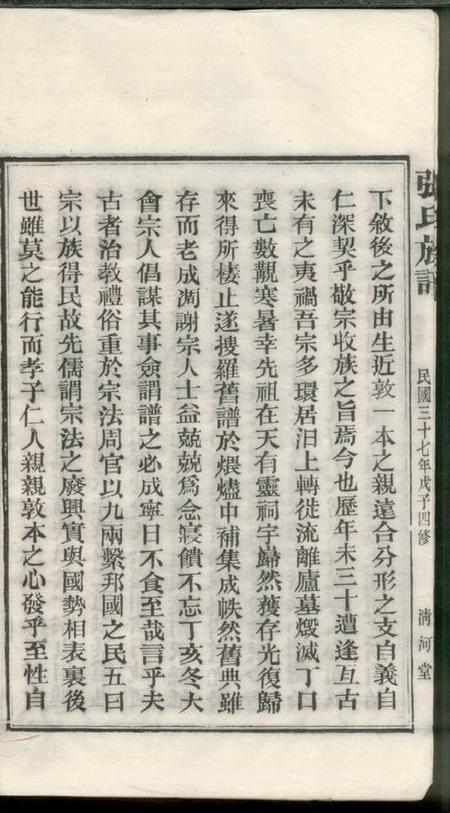 張氏族譜
民國三十七年戊子四修
清河堂
下敘後之所由生近敦一本之親遠合分形之支自義自
仁深契乎敬宗收族之旨焉今也歷年未三十遭逢亙古
未有之夷禍吾宗多環居汨上轉徙流離廬墓燬滅丁口
喪亡數觀寒暑幸先祖在天有靈祠宇巋然獲存光復歸
來得所棲止遂搜羅舊譜於煨燼中補集成帙然舊典雖
存而老成凋謝宗人士益兢兢爲念寢饋不忘丁亥冬大
會宗人倡謀其事僉謂譜之必成寧日不食至哉言乎夫
古者治教禮俗重於宗法周官以九兩繫邦國之民五曰
宗以族得民故先儒謂宗法之廢興實與國勢相表裏後
世雖莫之能行而孝子仁人親親敦本之心發乎至性自